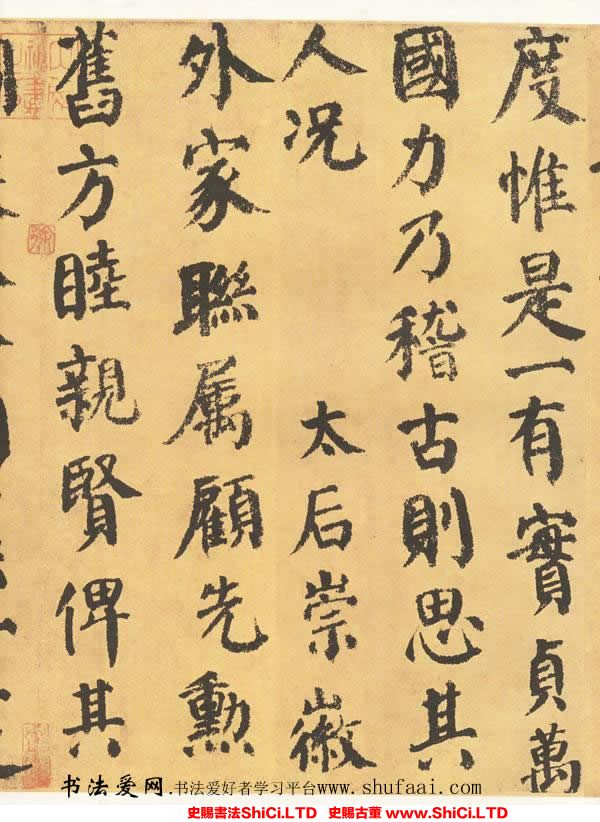 度惟是一有實貞萬
國力乃稽古則思其
人况 太后崇徽
外家聯属顧先勲
舊方睦親賢俾其
书法爱网.书法爱好者学习平台www.shufaai.com
史賜書法ShiCi.LTD 史賜古董 www.ShiCi.LTD